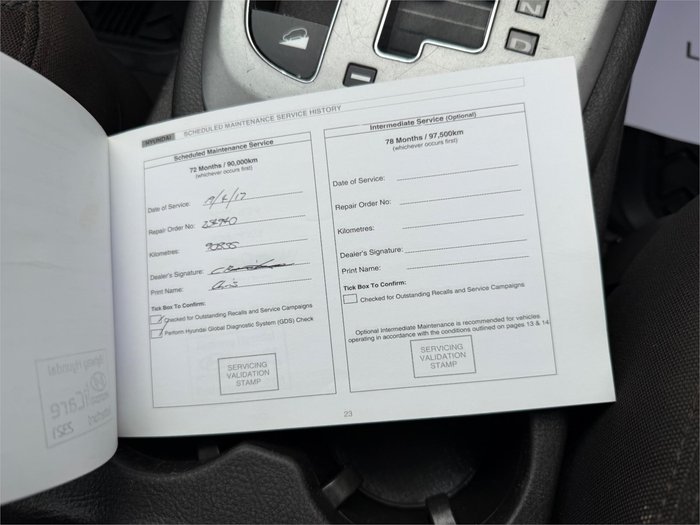 HYUNDAI SCHEDULED MAINTENANCE SERVICE HISTORY
Scheduled Maintenance Service
72 Months / 90,000km
(whichever occurs first)
Date of Service: 19/4/17
Repair Order No:
Kilometres: 90835
Dealer's Signature:
Print Name: Chris
Tick Box To Confirm:
Checked for Outstanding Recalls and Service Campaigns
Perform Hyundai Global Diagnostic System (GDS) Check
SERVICING
VALIDATION
STAMP
Intermediate Service (Optional)
78 Months / 97,500km
(whichever occurs first)
Date of Service:
Repair Order No:
Kilometres:
Dealer's Signature:
Print Name:
Tick Box To Confirm:
Checked for Outstanding Recalls and Service Campaigns
Optional Intermediate Maintenance is recommended for vehicles
operating in accordance with the conditions outlined on pages 13 & 14
SERVICING
VALIDATION
STAMP
23
N
D